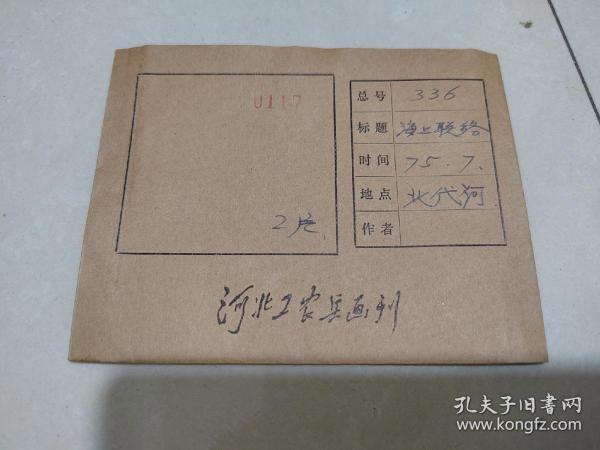 0117
2片
总号 336
标题 海上联络
时间 75.7.
地点 北代河
作者
河北工农兵画刊
孔夫子旧书网
www.kongfz.com